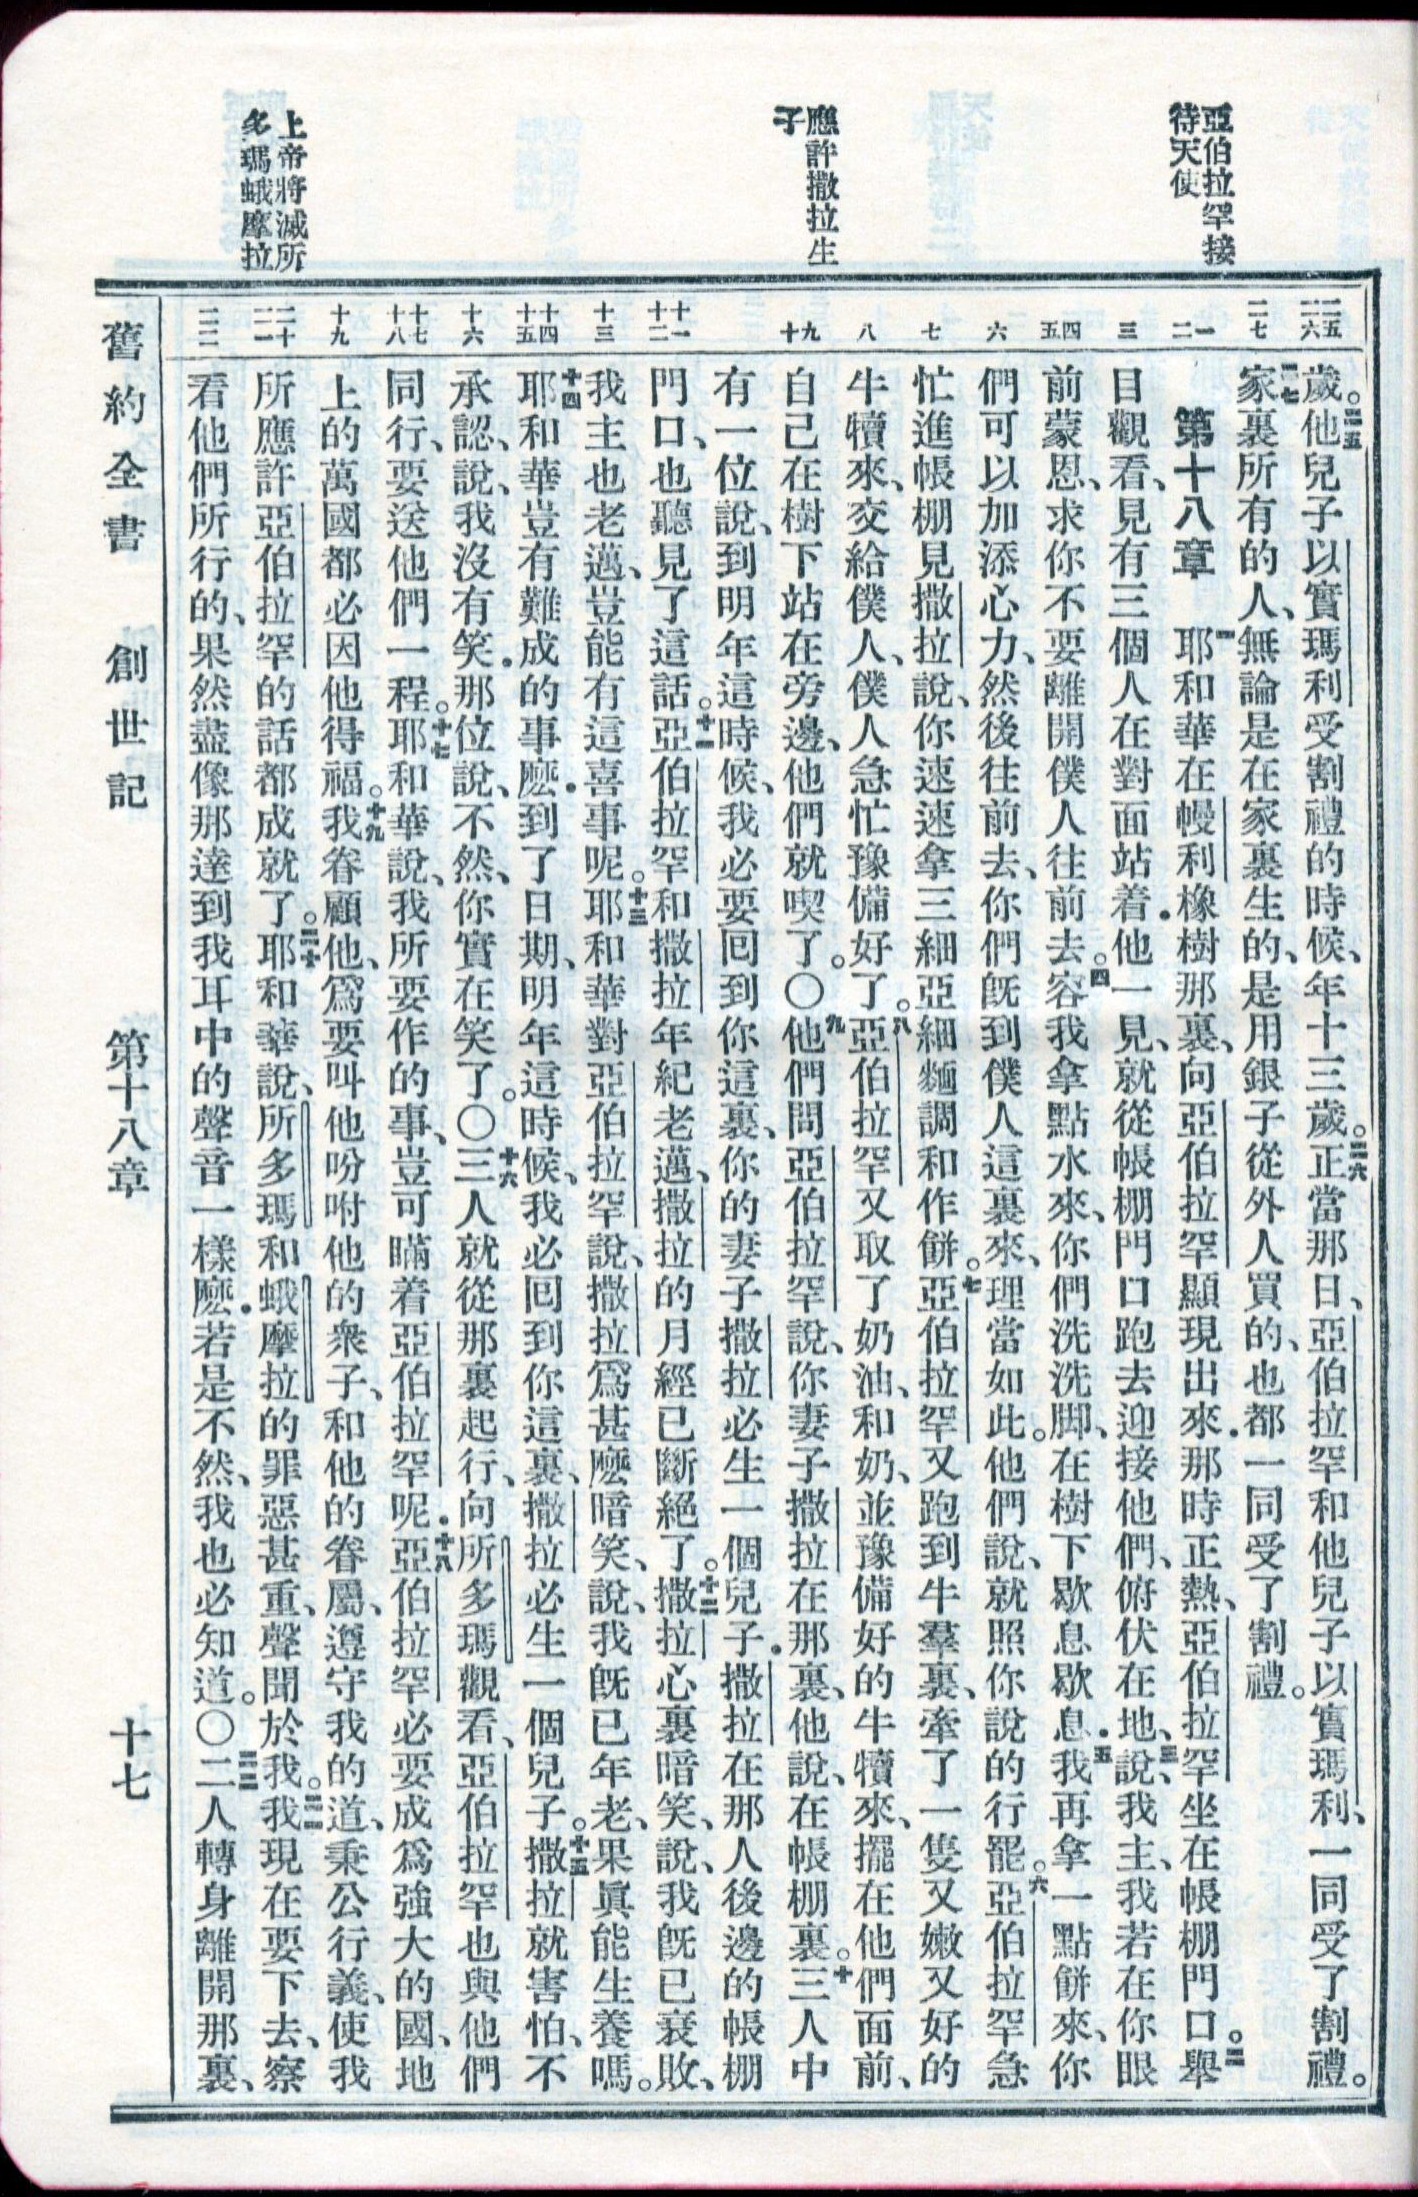 亞伯拉罕接
待天使
應許撒拉生
子
上帝將滅所
多瑪蛾摩拉
二五 二六
二七
一 二
三
四 五
六
七
八
九 十
十一 十二
十三
十四 十五
十六
十七 十八
十九
二十 二一
二二
歲。二五他兒子以實瑪利受割禮的時候、年十三歲。二六正當那日、亞伯拉罕和他兒子以實瑪利、一同受了割禮。
二七家裏所有的人、無論是在家裏生的、是用銀子從外人買的、也都一同受了割禮。
第十八章 一耶和華在幔利橡樹那裏、向亞伯拉罕顯現出來．那時正熱、亞伯拉罕坐在帳棚門口。二舉
目觀看、見有三個人在對面站着．他一見、就從帳棚門口跑去迎接他們、俯伏在地、三說、我主、我若在你眼
前蒙恩、求你不要離開僕人往前去。四容我拿點水來、你們洗洗脚、在樹下歇息歇息．五我再拿一點餅來、你
們可以加添心力、然後往前去、你們旣到僕人這裏來、理當如此。他們說、就照你說的行罷。六亞伯拉罕急
忙進帳棚見撒拉說、你速速拿三細亞細麵調和作餅。七亞伯拉罕又跑到牛羣裏、牽了一隻又嫩又好的
牛犢來、交給僕人、僕人急忙豫備好了。八亞伯拉罕又取了奶油、和奶、並豫備好的牛犢來、擺在他們面前、
自己在樹下站在旁邊、他們就喫了。〇九他們問亞伯拉罕說、你妻子撒拉在那裏、他說、在帳棚裏。十三人中
有一位說、到明年這時候、我必要回到你這裏、你的妻子撒拉必生一個兒子．撒拉在那人後邊的帳棚
門口、也聽見了這話。十一亞伯拉罕和撒拉年紀老邁、撒拉的月經已斷絕了。十二撒拉心裏暗笑、說、我旣已衰敗、
我主也老邁、豈能有這喜事呢。十三耶和華對亞伯拉罕說、撒拉爲甚麽暗笑、說、我旣已年老、果眞能生養嗎。
十四耶和華豈有難成的事麽．到了日期、明年這時候、我必回到你這裏、撒拉必生一個兒子。十五撒拉就害怕、不
承認、說、我沒有笑．那位說、不然、你實在笑了。〇十六三人就從那裏起行、向所多瑪觀看、亞伯拉罕也與他們
同行、要送他們一程。十七耶和華說、我所要作的事、豈可瞞着亞伯拉罕呢．十八亞伯拉罕必要成爲強大的國、地
上的萬國都必因他得福。十九我眷顧他、爲要叫他吩咐他的衆子、和他的眷屬、遵守我的道、秉公行義、使我
所應許亞伯拉罕的話都成就了。二十耶和華說、所多瑪和蛾摩拉的罪惡甚重、聲聞於我。二一我現在要下去、察
看他們所行的、果然盡像那達到我耳中的聲音一樣麽．若是不然、我也必知道。〇二二二人轉身離開那裏、
舊約全書 創世記 第十八章 十七